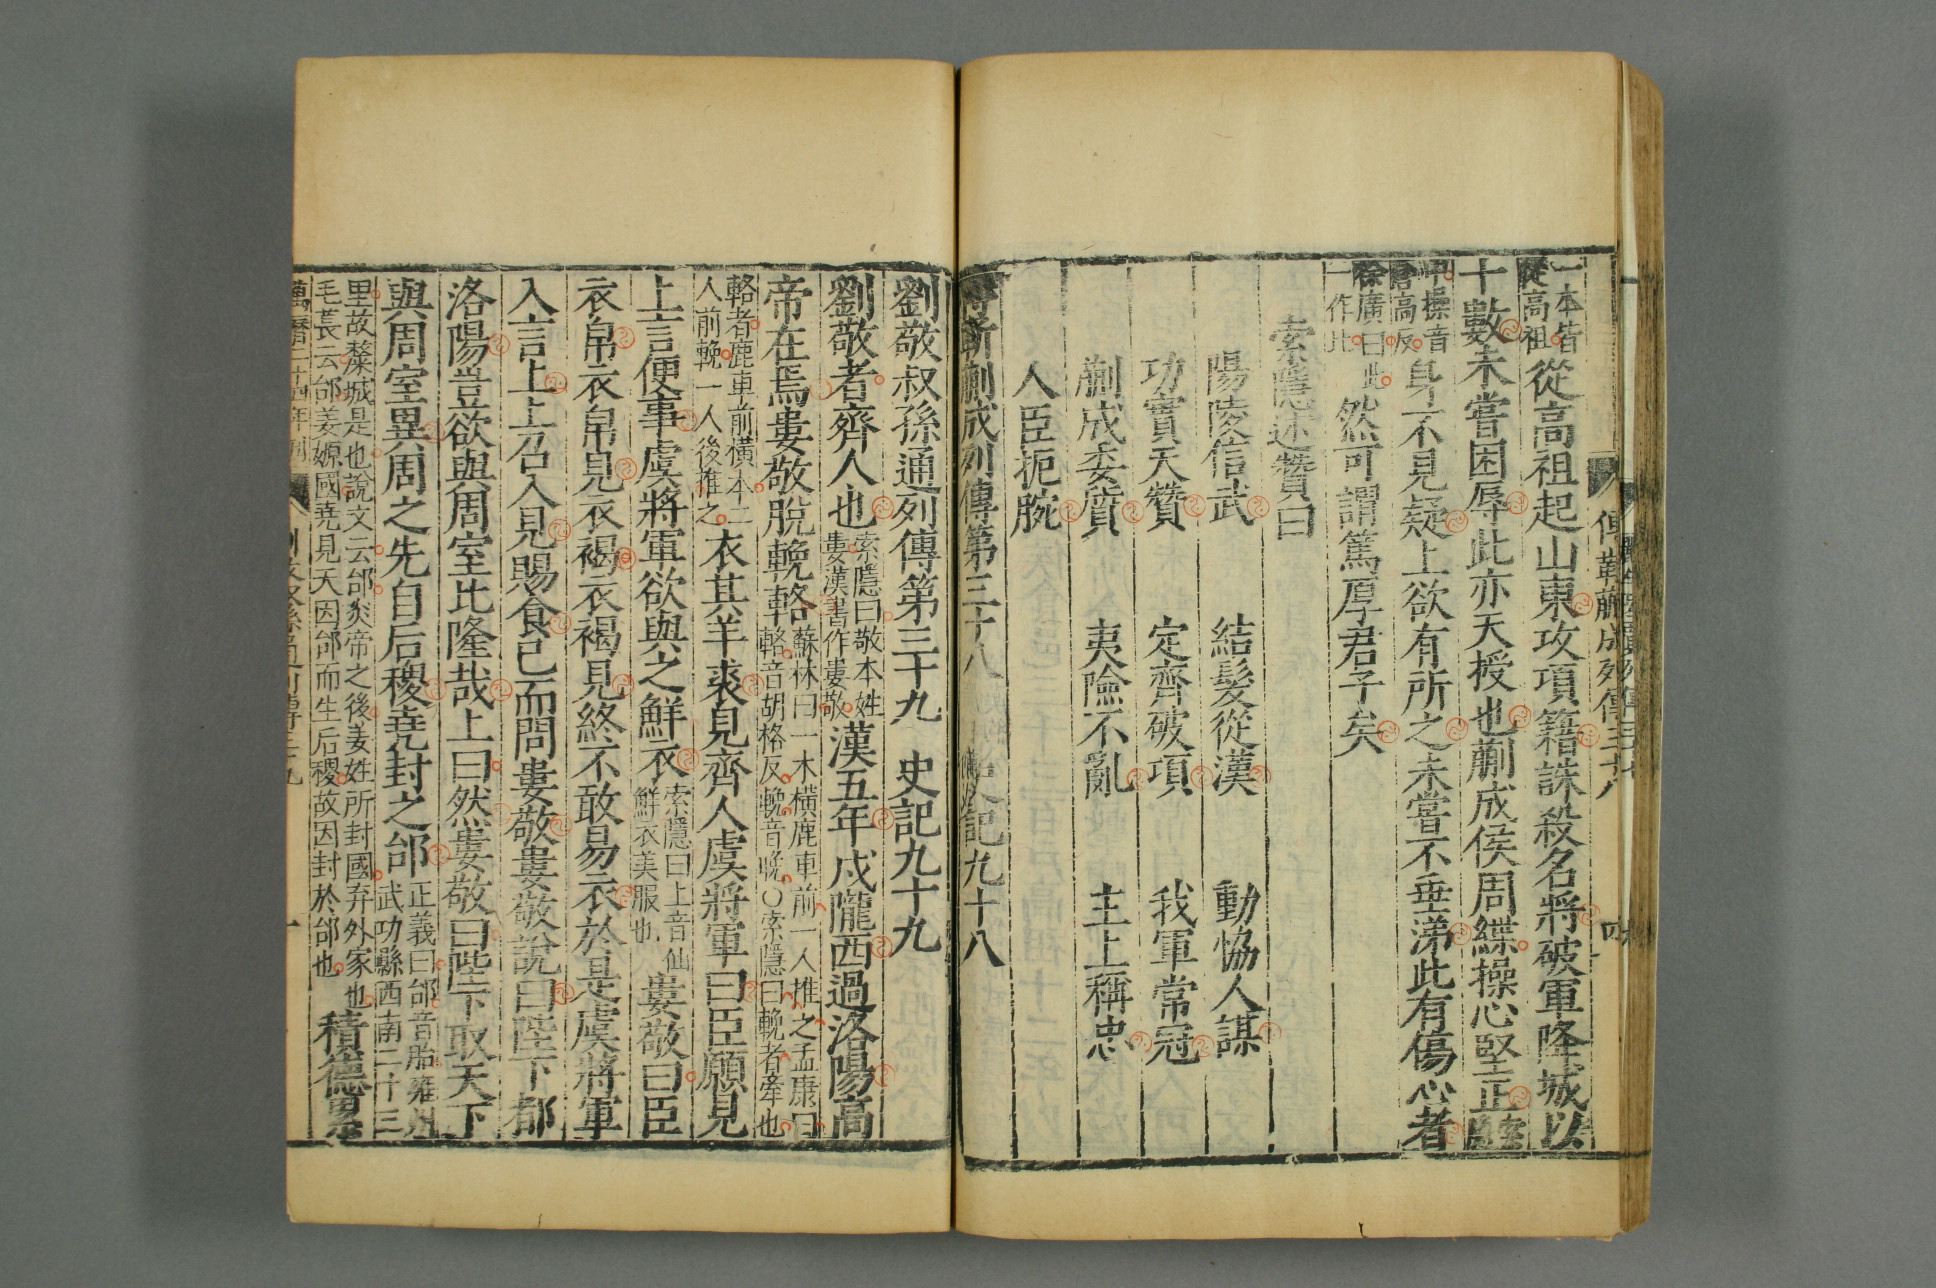 傳靳蒯成列傳三十八
一本皆
從高祖
從高祖起山東攻項籍誅殺名將破軍降城以
十數未嘗困辱此亦天授也蒯成侯周緤操心堅正
操音
高反
身不見疑上欲有所之未嘗不垂涕此有傷心者
徐廣曰此
一作比
然可謂篤厚君子矣
索隱述贊曰
陽陵信武 結髮從漢 動協人謀
功實天贊 定齊破項 我軍常冠
蒯成委質 夷險不亂 主上稱忠
人臣扼腕
傅靳蒯成列傳第三十八 史記九十八
劉敬叔孫通列傳第三十九 史記九十九
劉敬者齊人也
索隱曰敬本姓
婁漢書作婁敬
漢五年戍隴西過洛陽高
帝在焉婁敬脫輓輅
蘇林曰一木橫鹿車前一人推之孟康曰
輅音胡格反輓音晚○索隱曰輓者牽也
輅者鹿車前橫木二
人前輓一人後推之
衣其羊裘見齊人虞將軍曰臣願見
上言便事虞將軍欲與之鮮衣
索隱曰上音仙
鮮衣美服也
婁敬曰臣
衣帛衣帛見衣褐衣褐見終不敢易衣於是虞將軍
入言上上召入見賜食已而問婁敬婁敬說曰陛下都
洛陽豈欲與周室比隆哉上曰然婁敬曰陛下取天下
與周室異周之先自后稷堯封之邰
正義曰邰音胎雍州
武功縣西南二十三
里故斄城是也說文云邰炎帝之後姜姓所封國弃外家也
毛萇云邰姜嫄國堯見天因邰而生后稷故因封於邰也
積德累
萬曆二十四年刊
劉敬叔孫通列傳三十九
一